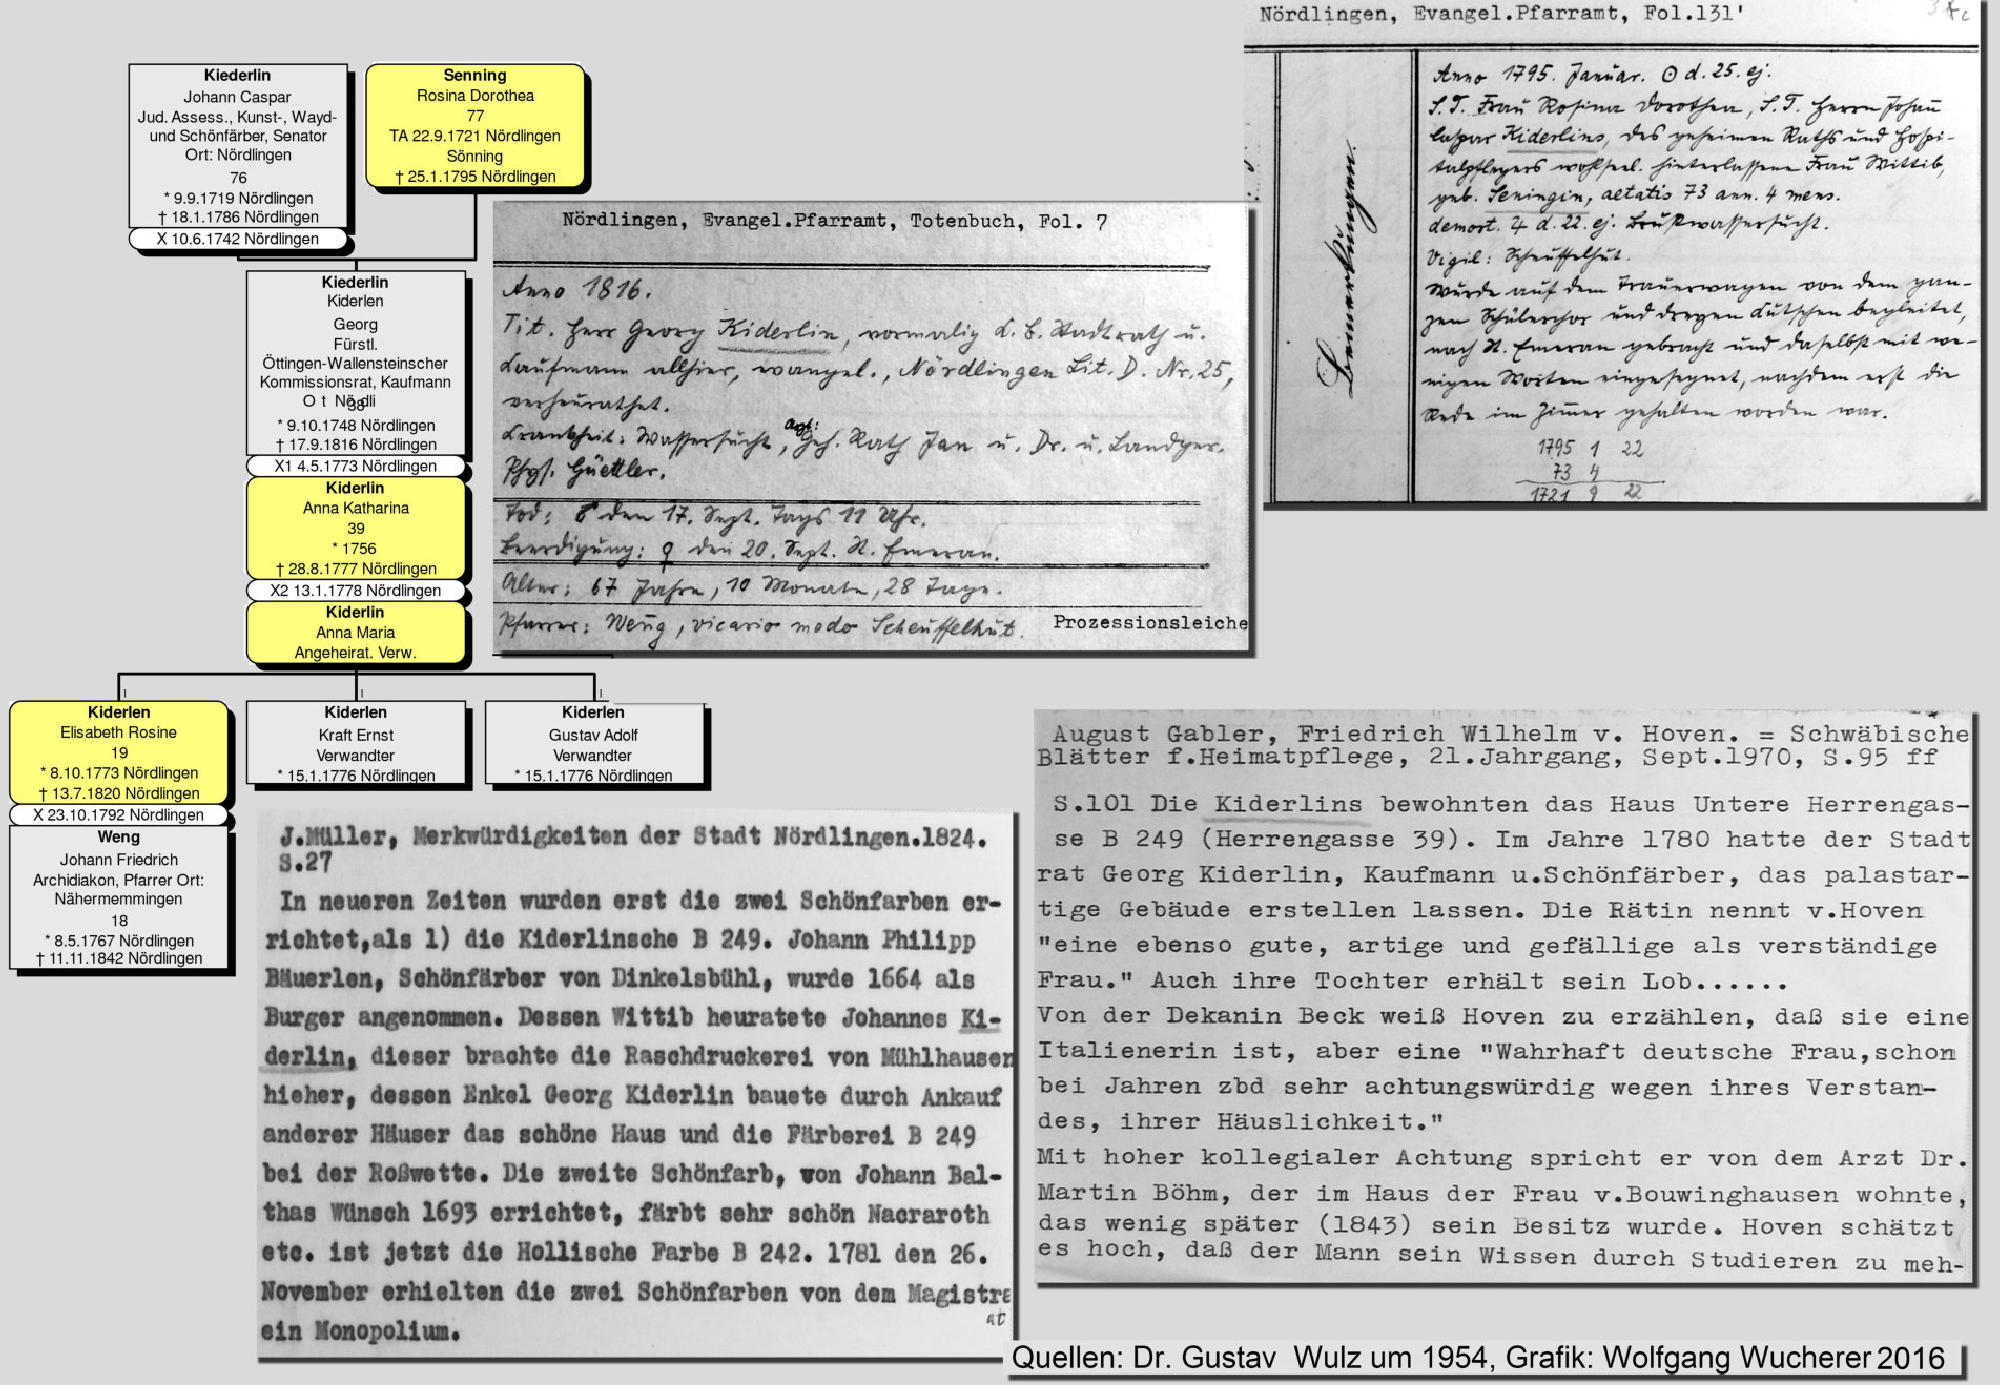 Kiederlin
Johann Caspar
Jud. Assess., Kunst-, Wayd-
und Schönfärber, Senator
Ort: Nördlingen
76
* 9.9.1719 Nördlingen
† 18.1.1786 Nördlingen
X 10.6.1742 Nördlingen
Senning
Rosina Dorothea
77
TA 22.9.1721 Nördlingen
Sönning
† 25.1.1795 Nördlingen
Kiederlin
Kiderlen
Georg
Fürstl.
Öttingen-Wallensteinscher
Kommissionsrat, Kaufmann
38
* 9.10.1748 Nördlingen
† 17.9.1816 Nördlingen
X1 4.5.1773 Nördlingen
Kiderlin
Anna Katharina
39
* 1756
† 28.8.1777 Nördlingen
X2 13.1.1778 Nördlingen
Kiderlin
Anna Maria
Angeheirat. Verw.
Kiderlen
Elisabeth Rosine
19
* 8.10.1773 Nördlingen
† 13.7.1820 Nördlingen
X 23.10.1792 Nördlingen
Weng
Johann Friedrich
Archidiakon, Pfarrer Ort:
Nähermemmingen
18
* 8.5.1767 Nördlingen
† 11.11.1842 Nördlingen
Kiderlen
Kraft Ernst
Verwandter
* 15.1.1776 Nördlingen
Kiderlen
Gustav Adolf
Verwandter
* 15.1.1776 Nördlingen
Nördlingen, Evangel.Pfarramt, Totenbuch, Fol. 7
Anno 1816.
Tit. Herr Georg Kiderlin, vormalig K. B. Stadtrath u.
Kaufmann allhier, evangel., Nördlingen Lit. D. Nr. 25,
verheurathet.
Krankheit: Wassersucht, Arzt: Geh. Rath Jan u. Dr. u. Landger.
Phys. Güettler.
Tod: den 17. Sept. Tags 11 Uhr.
Beerdigung: ♀ den 20. Sept. St. Emeran.
Alter: 67 Jahre, 10 Monate, 28 Tage.
Pfarrer: Weng, vicario modo Scheuffelhut.
Prozessionsleiche
Nördlingen, Evangel.Pfarramt, Fol.131'
Bemerkungen.
Anno 1795. Januar. ⊙ d. 25. ej.
S. T. Frau Rosina Dorothea, S. T. Herrn Johann
Caspar Kiderlins, des geheimen Raths und Hospi-
talpflegers wohlseel. hinterlassene Frau Wittib,
geb. Seningin, aetatis 73 ann. 4 mens.
demort. ♃ d. 22. ej. Brustwassersucht.
Vigil: Scheuffelhut.
Wurde auf dem Trauerwagen von dem gan-
zen Schülerchor und dreyen Kutschen begleitet,
nach St. Emeran gebracht und daselbst mit we-
nigen Worten eingesegnet, nachdem erst die
Rede im Zimmer gehalten worden war.
1795 1 22
73 4
1721 9 22
August Gabler, Friedrich Wilhelm v. Hoven. = Schwäbische
Blätter f.Heimatpflege, 21.Jahrgang, Sept.1970, S.95 ff
S.101 Die Kiderlins bewohnten das Haus Untere Herrengas-
se B 249 (Herrengasse 39). Im Jahre 1780 hatte der Stadt
rat Georg Kiderlin, Kaufmann u.Schönfärber, das palastar-
tige Gebäude erstellen lassen. Die Rätin nennt v.Hoven
"eine ebenso gute, artige und gefällige als verständige
Frau." Auch ihre Tochter erhält sein Lob......
Von der Dekanin Beck weiß Hoven zu erzählen, daß sie eine
Italienerin ist, aber eine "Wahrhaft deutsche Frau,schon
bei Jahren zbd sehr achtungswürdig wegen ihres Verstan-
des, ihrer Häuslichkeit."
Mit hoher kollegialer Achtung spricht er von dem Arzt Dr.
Martin Böhm, der im Haus der Frau v.Bouwinghausen wohnte,
das wenig später (1843) sein Besitz wurde. Hoven schätzt
es hoch, daß der Mann sein Wissen durch Studieren zu meh-
J.Müller, Merkwürdigkeiten der Stadt Nördlingen.1824.
S.27
In neueren Zeiten wurden erst die zwei Schönfarben er-
richtet,als 1) die Kiderlinsche B 249. Johann Philipp
Bäuerlen, Schönfärber von Dinkelsbühl, wurde 1664 als
Burger angenommen. Dessen Wittib heuratete Johannes Ki-
derlin, dieser brachte die Raschdruckerei von Mühlhausen
hieher, dessen Enkel Georg Kiderlin bauete durch Ankauf
anderer Häuser das schöne Haus und die Färberei B 249
bei der Roßwette. Die zweite Schönfarb, von Johann Bal-
thas Wünsch 1693 errichtet, färbt sehr schön Nacraroth
etc. ist jetzt die Hollische Farbe B 242. 1781 den 26.
November erhielten die zwei Schönfarben von dem Magistra
at
ein Monopolium.
Quellen: Dr. Gustav Wulz um 1954, Grafik: Wolfgang Wucherer 2016